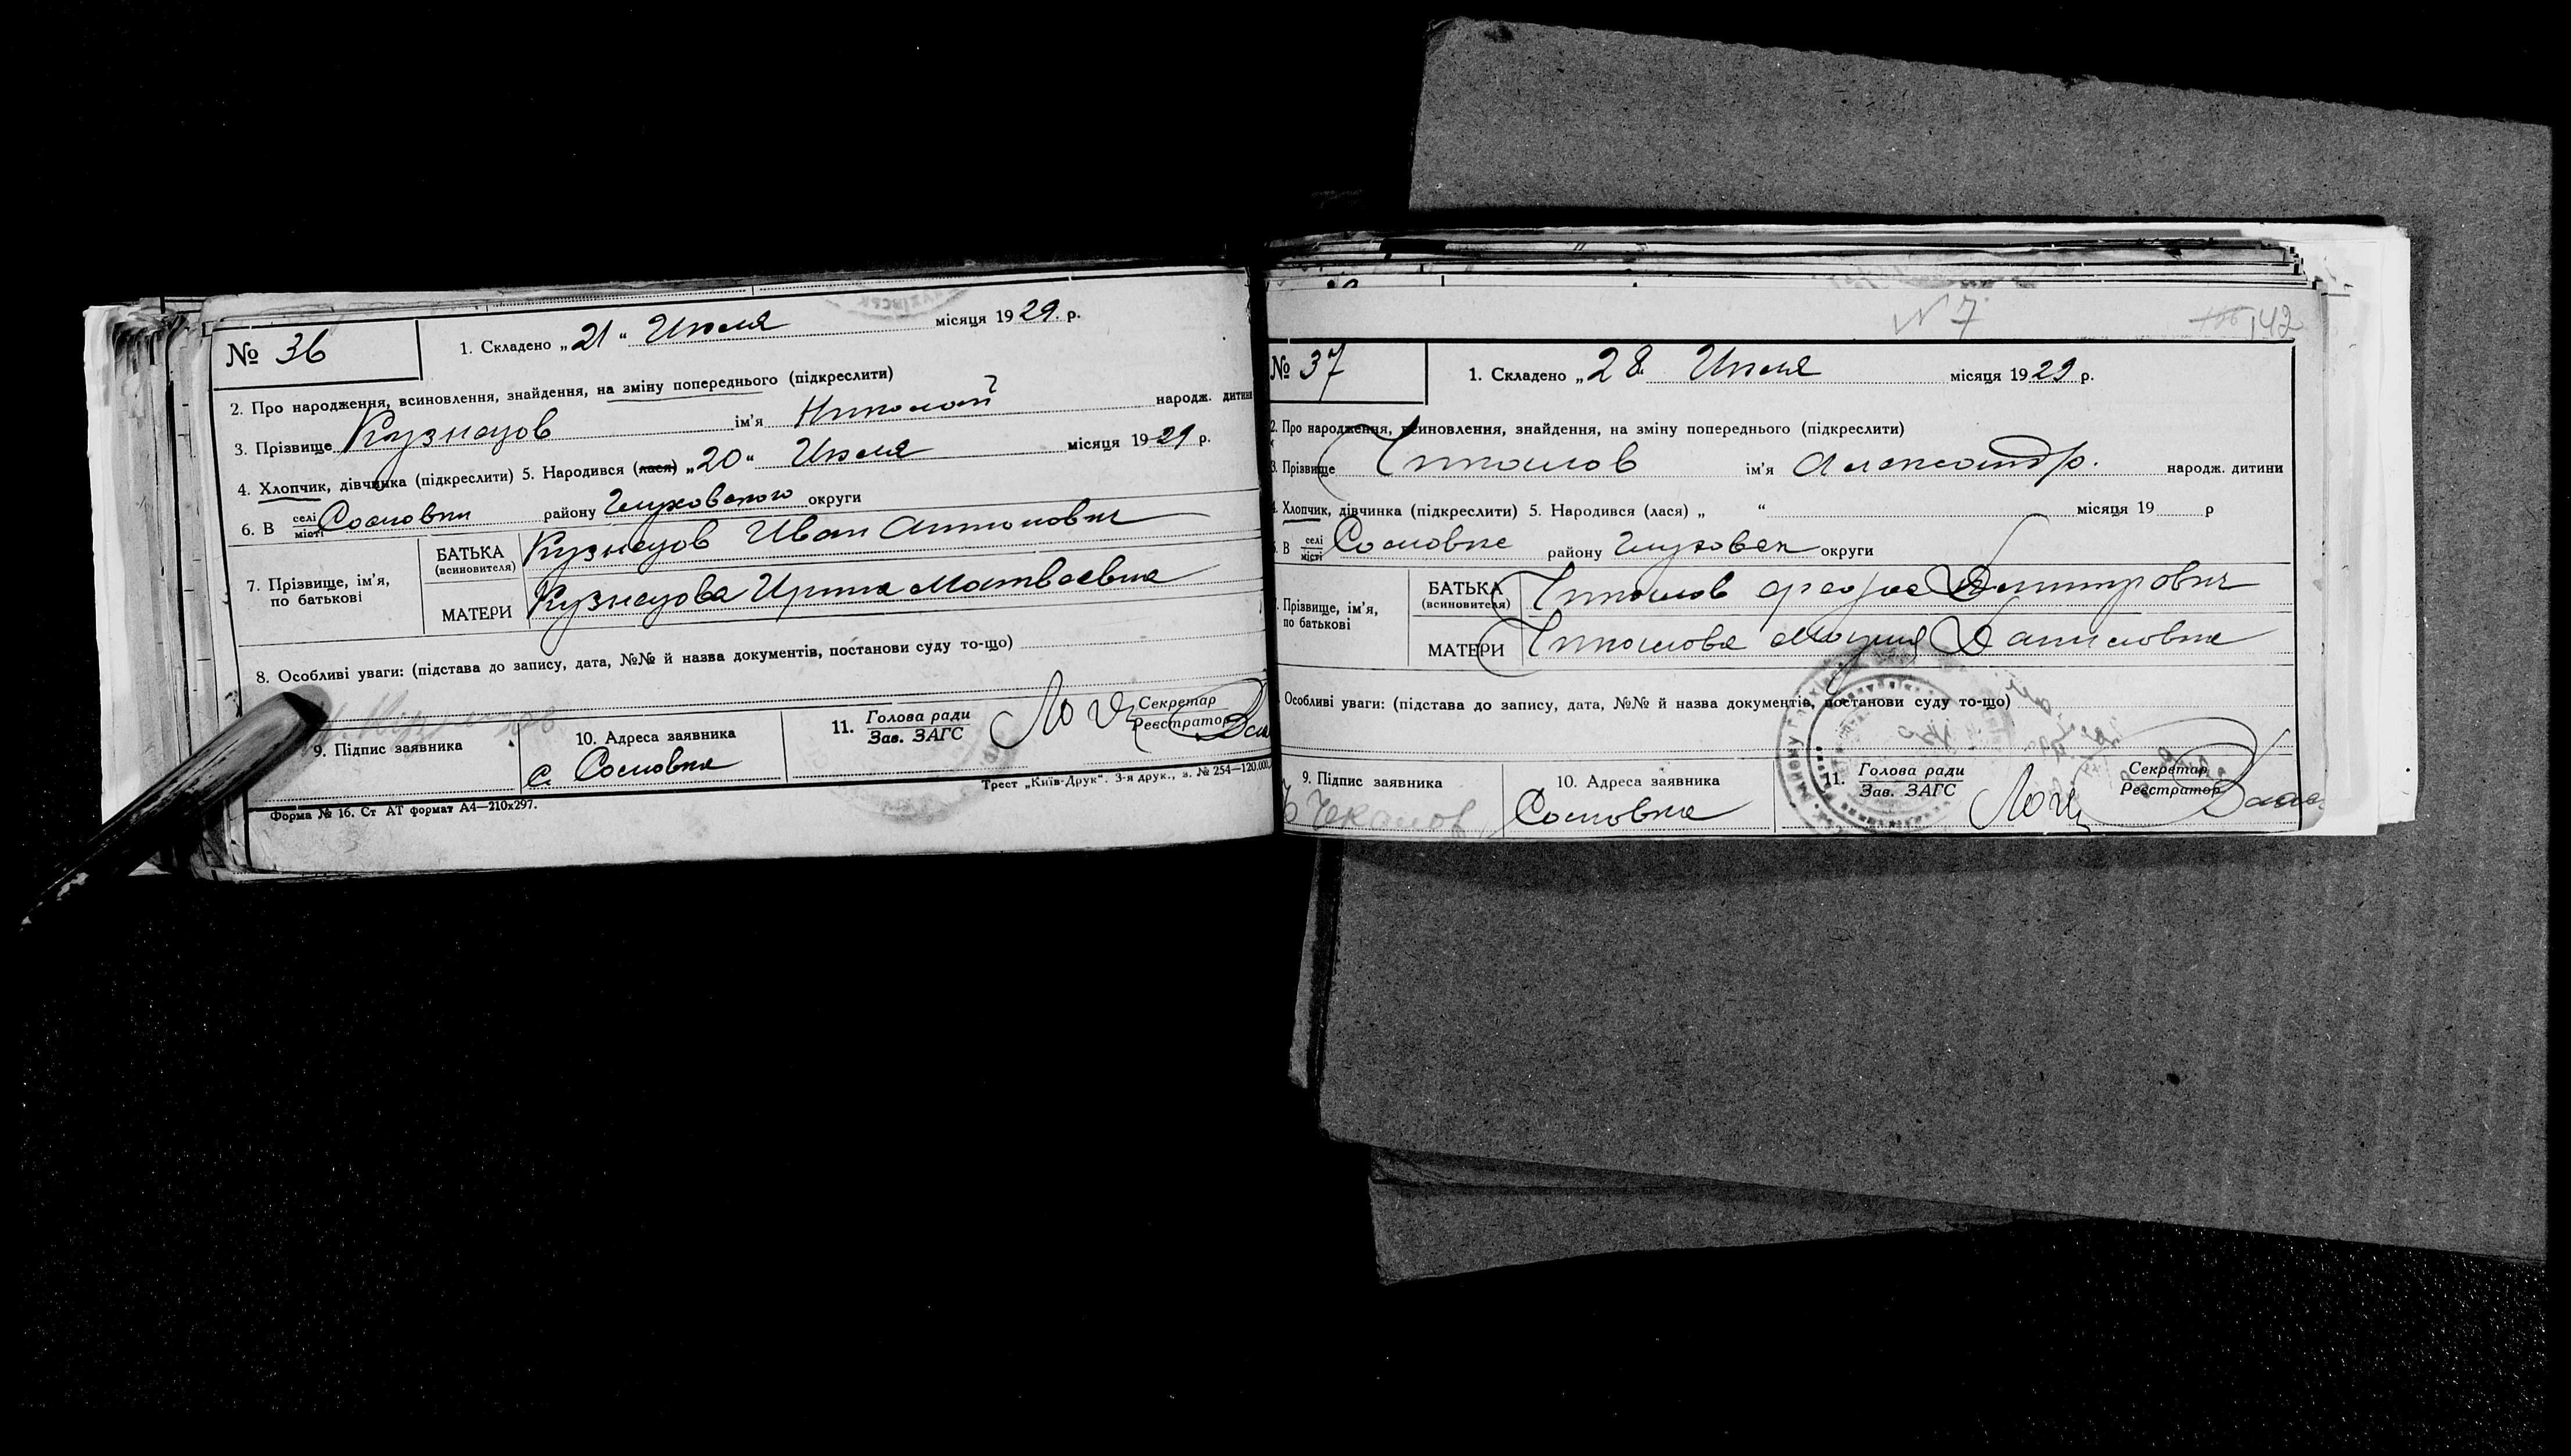 № 36
1. Складено „21“ Июля місяця 1929. р.
2. Про народження, всиновлення, знайдення, на зміну попереднього (підкреслити)
3. Прізвище Кузнецов ім'я Николай народж. дитини
4. Хлопчик, дівчинка (підкреслити) 5. Народився (лася) „20“ Июля місяця 1929 р.
6. В селі місті Сосновки району Глуховского округи
7. Прізвище, ім'я, по батькові
БАТЬКА (всиновителя) Кузнецов Иван Антонович
МАТЕРИ Кузнецова Ирина Матвеевна
8. Особливі уваги: (підстава до запису, дата, №№ й назва документів, постанови суду то-що)
9. Підпис заявника
10. Адреса заявника
с. Сосновка
11. Голова ради Зав. ЗАГС
Секретар Реєстратор
Форма № 16. Ст АТ формат А4—210х297.
Трест „Київ-Друк“. 3-я друк., з. № 254—120.000
N 7
142
№ 37
1. Складено „28“ Июля місяця 1929 р.
2. Про народження, всиновлення, знайдення, на зміну попереднього (підкреслити)
3. Прізвище Чикалов ім'я Александр. народж. дитини
Хлопчик, дівчинка (підкреслити) 5. Народився (лася) „ “ місяця 19 р
В селі місті Сосновке району Глуховск округи
Прізвище, ім'я, по батькові
БАТЬКА (всиновителя) Чикалов Дмитрович
МАТЕРИ Чикалова Мария Даниловна
Особливі уваги: (підстава до запису, дата, №№ й назва документів, постанови суду то-що)
9. Підпис заявника
10. Адреса заявника
Сосновка
11. Голова ради Зав. ЗАГС
Секретар Реєстратор